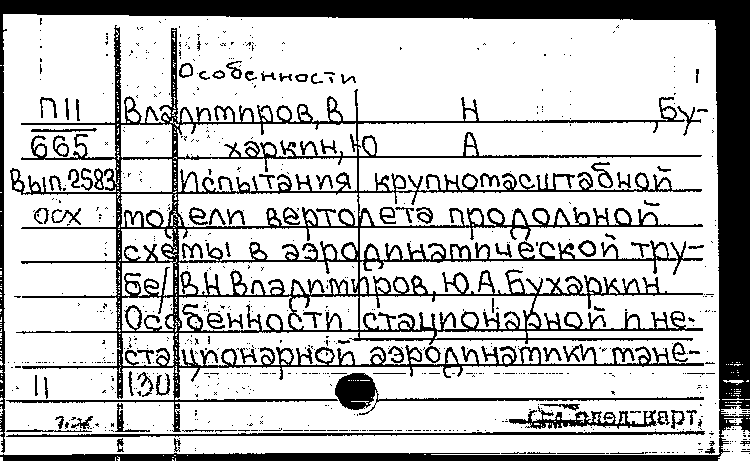 Особенности 1
П11 Владимиров, В Н , Бу-
665 харкин, Ю А
Вып.2583 Испытания крупномасштабной
осх модели вертолета продольной
схемы в аэродинамической тру-
бе/В.Н.Владимиров, Ю.А.Бухаркин.
Особенности стационарной и не-
стационарной аэродинамики мане-
11 130
См. след. карт.